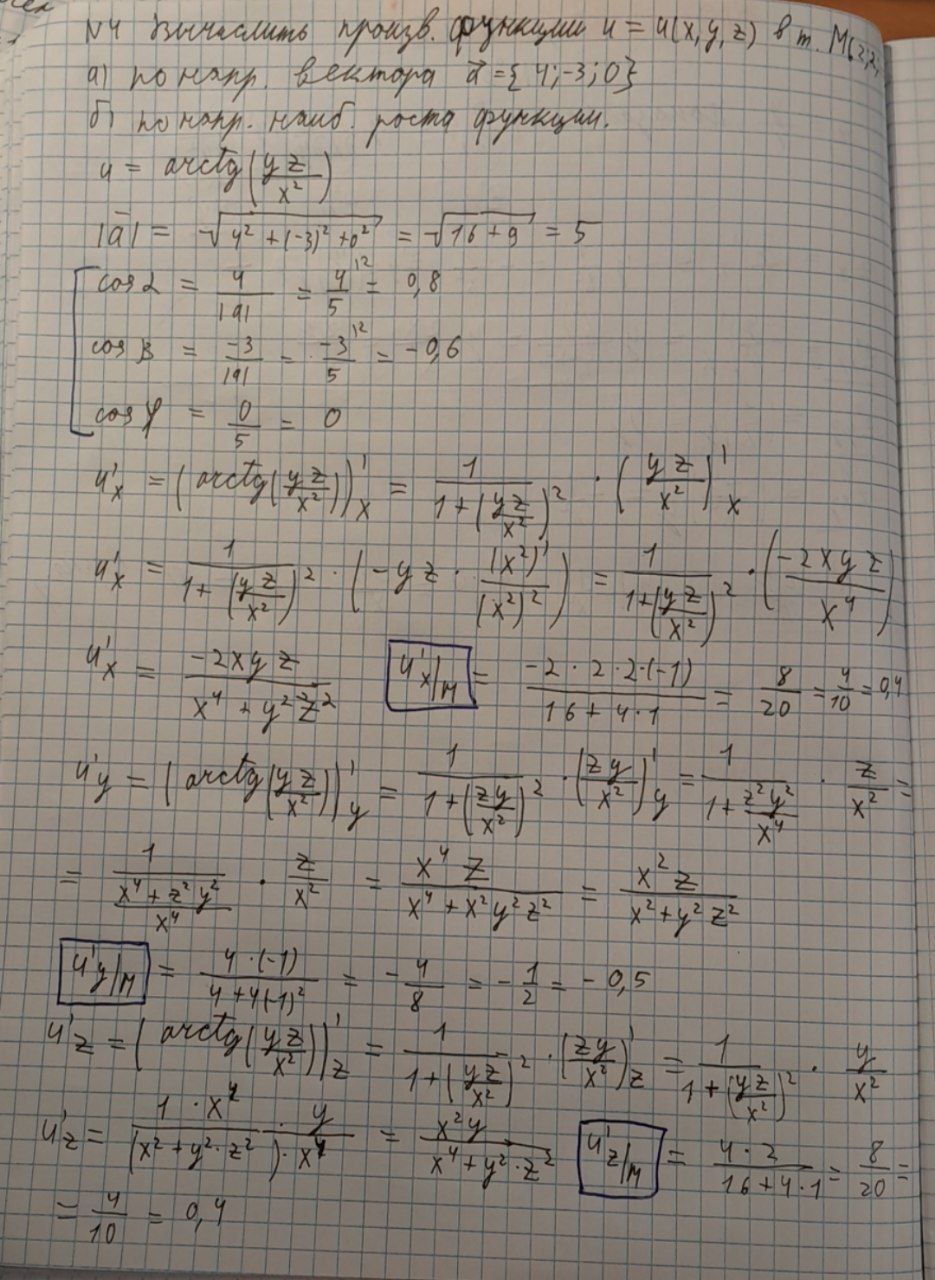 N4 Вычислить произв. функции u = u(x,y,z) в т. M(2;2;
а) по напр. вектора a⃗ = {4;-3;0}
б) по напр. наиб. роста функции.
u = arctg(yz/x²)
|a̅| = √(4² + (-3)² + 0²) = √(16 + 9) = 5
cos α = 4/|a| = 4/5 ^12 = 0,8
cos β = -3/|a| = -3/5 ^12 = -0,6
cos γ = 0/5 = 0
u'x = (arctg(yz/x²))'x = 1/(1 + (yz/x²)²) · (yz/x²)'x
u'x = 1/(1 + (yz/x²)²) · (-yz · (x²)'/(x²)²) = 1/(1 + (yz/x²)²) · (-2xyz/x⁴)
u'x = -2xyz/(x⁴ + y²z²) u'x/M = -2·2·2·(-1)/(16 + 4·1) = 8/20 = 4/10 = 0,4
u'y = (arctg(yz/x²))'y = 1/(1 + (zy/x²)²) · (zy/x²)'y = 1/(1 + z²y²/x⁴) · z/x² =
= 1/((x⁴ + z²y²)/x⁴) · z/x² = x⁴z/(x⁴ + x²y²z²) = x²z/(x² + y²z²)
u'y/M = 4·(-1)/(4 + 4(-1)²) = -4/8 = -1/2 = -0,5
u'z = (arctg(yz/x²))'z = 1/(1 + (yz/x²)²) · (zy/x²)'z = 1/(1 + (yz/x²)²) · y/x²
u'z = 1·x⁴ · y/((x² + y²·z²)·x⁴) = x²y/(x⁴ + y²·z²) u'z/M = 4·2/(16 + 4·1) = 8/20 =
= 4/10 = 0,4